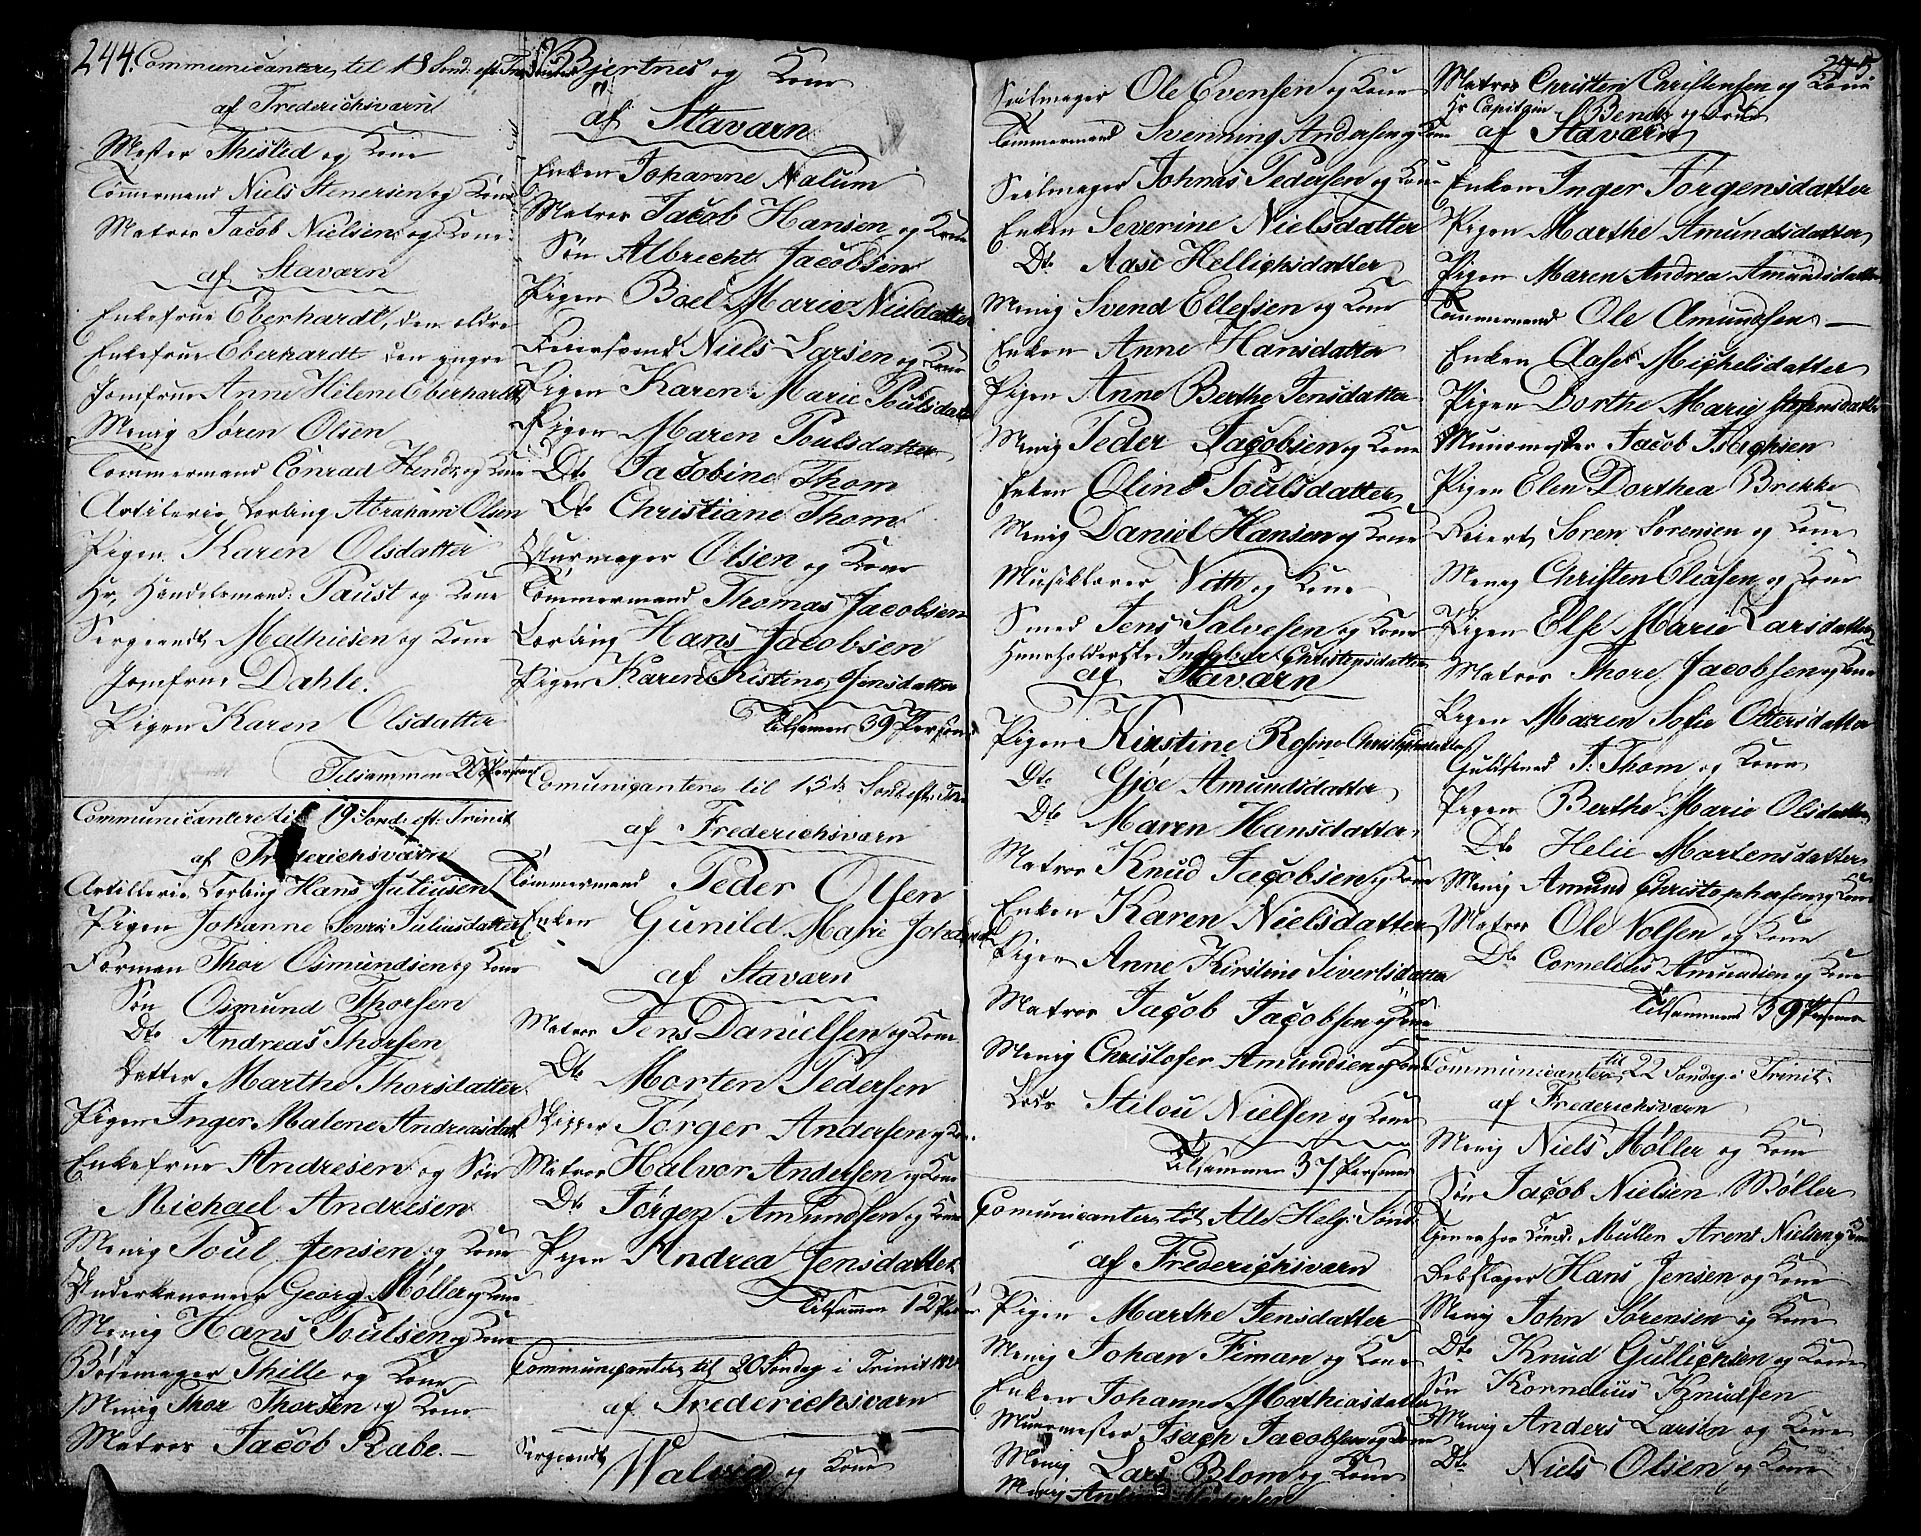 244. Communicantere til 18 Sond: eft Trinitatis
af Frederichsværn
Mester Thisted og Kone
Tømmermand Niels Stenersen og Kone
Matros Jacob Nielsen og Kone
af Staværn
Enkefrue Eberhardt, den ældre
Enkefrue Eberhardt den yngre
Jomfrue Anne Helene Eberhardt
Menig Søren Olsen
Tømmermand Conrad Hendr: og Kone
Artilerie Lærling Abraham Olsen
Pigen Karen Olsdatter
Hr. Handelsmand Paust og Kone
Sergeendt Mathiesen og Kone
Jomfrue Dahle.
Pigen Karen Olsdatter
Tilsammen Personer
Communicantere til 19 Sond: eft: Trinit
af Frederichsværn
Artillerie Lærling Hans Juliusen
Pigen Johanne Sevri Juliusdatter
Formen Thor Osmundsen og Kone
Søn Osmund Thorsen
Dto Andreas Thorsen
Datter Marthe Thorsdatter
Pigen Inger Malene Andreasdat
Enkefrue Andresen og Søn
Michael Andresen
Menig Poul Jensen og Kone
Underkanoneer Georg Møller og Kone
Menig Hans Poulsen og Kone
Bøsemager Thille og Kone
Menig Thor Thorsen og Kone
Matros Jacob Rabe.
Bjertnes og Kone
af Staværn
Enken Johanne Nalum
Matros Jacob Hansen og Kone
Søn Albrecht Jacobsen
Pigen Boel Marie Nielsdatter
Feiersvend Niels Larsen og Kone
Pigen Karen Marie Poulsdatter
Pigen Maren Poulsdatter
Dto Jacobine Thom
Dto Christiane Thom
Uurmager Olsen og Kone
Tømmermand Thomas Jacobsen
Lærling Hans Jacobsen
Pigen Karen Kistine Jensdatter
Tilsammen 39 Personer
Comunicantere til 15de Sond eft: Trin
af Frederichsværn
Tømmermand Peder Olsen
Enken Gunild Marie Johansd
af Staværn
Matros Jens Danielsen og Kone
Dto Morten Pedersen
Skipper Jørger Andersen og Kone
Matros Halvor Andersen og Kone
Dto Jørgen Amundsen og Kone
Pigen Andrea Jensdatter
Tilsammen 12 Personer
Communicantere til 20 Søndag i Trinit
af Frederichsværn
Sergeendt Walvig og Kone
245.
Seilmager Ole Evensen og Kone
Tømmermand Svenning Andersen og Kone
Seilmager Johnas Pedersen og Kone
Enken Severine Nielsdatter
Dto Aase Hellichsdatter
Menig Svend Ellefsen og Kone
Enken Anne Hansdatter
Pigen Anne Berthe Jensdatter
Menig Peder Jacobsen og Kone
Enken Oline Poulsdatter
Menig Daniel Hansen og Kone
Musiklærer Vith og Kone
Smed Jens Salvesen og Kone
Huusholderske Ingebor Christensdatter
af Staværn
Pigen Kirstine Rosine Christophersdatter
Dto Gjøe Amundsdatter
Dto Maren Hansdatter
Matros Knud Jacobsen og Kone
Enken Karen Nielsdatter
Pigen Anne Kirstine Sivertsdatter
Matros Jacob Jacobsen og Kone
Menig Christofer Amundsen og Kone
Lods Stilou Nielsen og Kone
Tilsammen 37 Personer
Comunicantere til Alle Helg: Sønd
af Frederichsværn
Pigen Marthe Jensdatter
Menig Johan Fiman og Kone
Enken Johanne Mathiasdatter
Muurmester Isach Jacobsen og Kone
Menig Lars Blom og Kone
Menig
Matros Christen Christensen og Kone
Hr Capitain Bendz og Frue
af Staværn
Enken Inger Jørgensdatter
Pigen Marthe Amundsdatter
Pigen Maren Andrea Amundsdatter
Tømmermand Ole Amundsen
Enken Aase Michelsdatter
Pigen Dorthe Marie Stefensdatter
Muurmester Jacob Isachsen
Pigen Elen Dorthea Brikke
Feiert Søren Sørensen og Kone
Menig Christen Eliasen og Kone
Pigen Else Marie Larsdatter
Matros Thore Jacobsen og Kone
Pigen Maren Sofie Ottersdatter
Guldsmed J: Thom og Kone
Pigen Berthe Marie Olsdatter
Dto Helie Mortensdatter
Menig Amund Christophersen og Kone
Matros Ole Nolsen og Kone
Dto Cornelius Amundsen og Kone
Tilsammen 39 Personer
Communicantere til 22 Søndag i Trinit:
af Frederichsværn
Menig Niels Møller og Kone
Søn Jacob Nielsen Møller
Müller Arent Nielsen og Kone
Rebslager Hans Jensen og Kone
Menig John Sørensen og Kone
Dto Knud Gullichsen og Kone
Søn Kornelius Knudsen
Menig Anders Larsen og Kone
Dto Niels Olsen og Kone